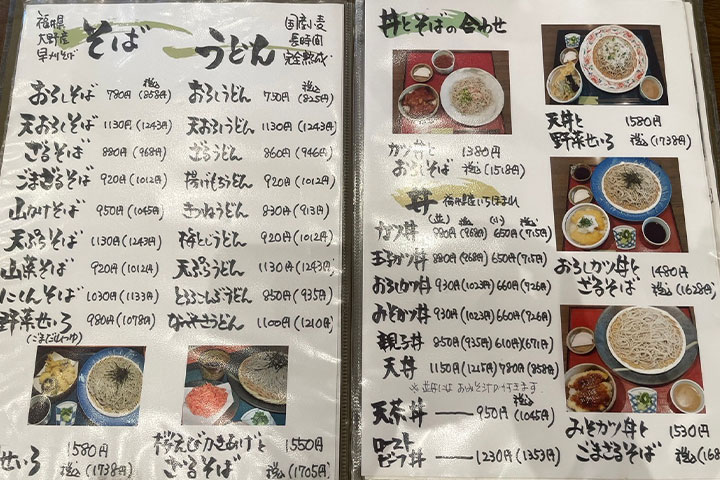 福井県
大野産
早刈そば
そば
うどん
国産小麦
長時間
完全熟成
おろしそば 780円 税込(858円)
天おろしそば 1130円(1243円)
ざるそば 880円(968円)
ごまざるそば 920円(1012円)
山かけそば 950円(1045円)
天ぷらそば 1130円(1243円)
山菜そば 920円(1012円)
にしんそば 1030円(1133円)
野菜せいろ 980円(1078円)
(ごまだしつゆ)
おろしうどん 750円 税込(825円)
天おろしうどん 1130円(1243円)
ざるうどん 860円(946円)
揚げもちうどん 920円(1012円)
きつねうどん 830円(913円)
梅とじうどん 920円(1012円)
天ぷらうどん 1130円(1243円)
とろろこんぶうどん 850円(935円)
うどん 1100円(1210円)
せいろ 1580円
税込(1738円)
桜えびかきあげと
ざるそば 1550円
税込(1705円)
丼とそばの合わせ
カツ丼と
おろしそば 1380円
税込(1518円)
天丼と
野菜せいろ 1580円
税込(1738円)
丼 福井県産いちほまれ
(並) 税込 (小) 税込
カツ丼 880円(968円) 650円(715円)
玉子カツ丼 880円(968円) 650円(715円)
おろしカツ丼 930円(1023円) 660円(726円)
みそカツ丼 930円(1023円) 660円(726円)
親子丼 850円(935円) 610円(671円)
天丼 1150円(1265円) 780円(858円)
※並丼には おみそ汁が付きます
天茶丼 950円 税込(1045円)
ロースト
ビーフ丼 1230円(1353円)
おろしカツ丼と
ざるそば 1480円
税込(1628円)
みそカツ丼と
ごまざるそば 1530円
税込(168